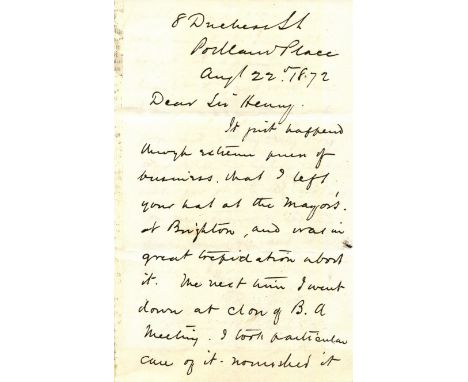 8 Duchess St
Portland Place
Augt 22d. 1872
Dear Sir Henry.
It just happend
through extreme press of
business. that I left
your hat at the Mayor's.
at Brighton, and was in
great trepidation about
it. The next time I went
down at close of B. A
Meeting. I took particular
care of it - nourished it